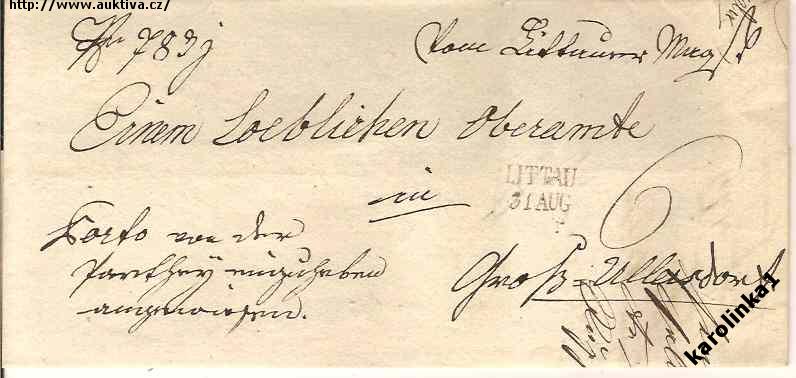 http://www.auktiva.cz/
No 783j
Vom Littauer Mag
Einem Loeblichen Oberamte
in
LITTAU
31 AUG
6
Groß-Ullersdorf
Porto von der
Parthey einzuheben
angewiesen.
karolinka1